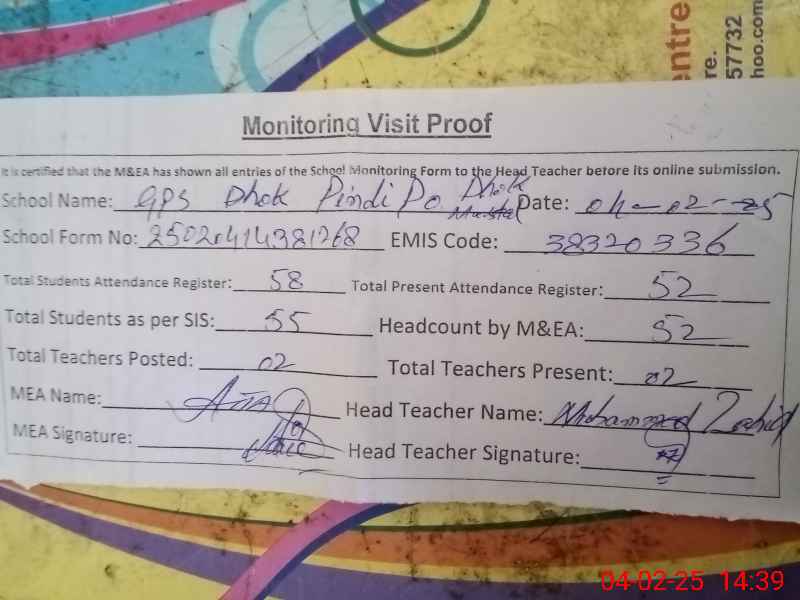 entre
re.
57732
hoo.com
Monitoring Visit Proof
It is certified that the M&EA has shown all entries of the School Monitoring Form to the Head Teacher before its online submission.
School Name: GPS Dhok Pindi Po Dhok Date: 04-02-25
School Form No: 25020414381268 EMIS Code: 38320336
Total Students Attendance Register: 58 Total Present Attendance Register: 52
Total Students as per SIS: 55 Headcount by M&EA: 52
Total Teachers Posted: 02 Total Teachers Present: 02
MEA Name: Head Teacher Name: Mohammad Zahid
MEA Signature: Head Teacher Signature:
04-02-25 14:39